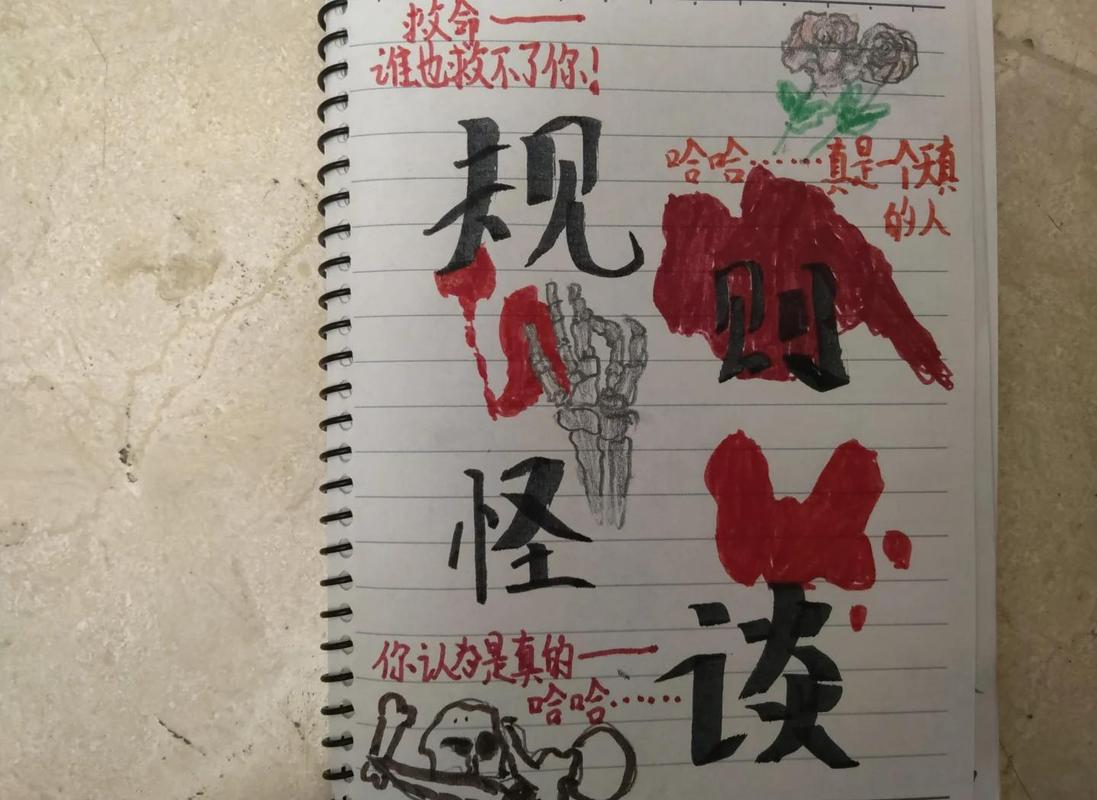 救命——
谁也救不了你!
哈哈……真是个天真
的人
规则
怪谈
你认为是真的——
哈哈……